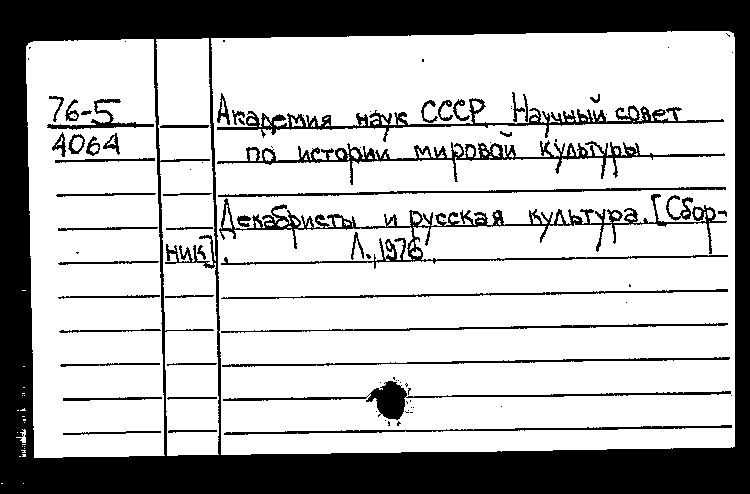 76-5 Академия наук СССР. Научный совет
4064 по истории мировой культуры.
Декабристы и русская культура. [Сбор-
ник]. Л., 1976.